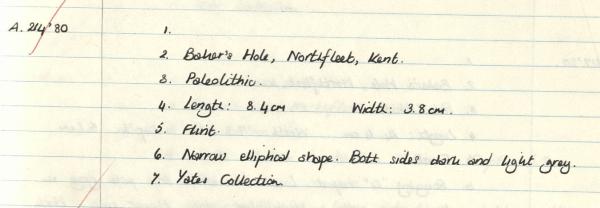 A. 214'80
1.
2. Baker's Hole, Northfleet, Kent.
3. Paleolithic.
4. Length: 8.4cm Width: 3.8cm.
5. Flint.
6. Narrow elliptical shape. Both sides dark and light grey.
7. Yates Collection.